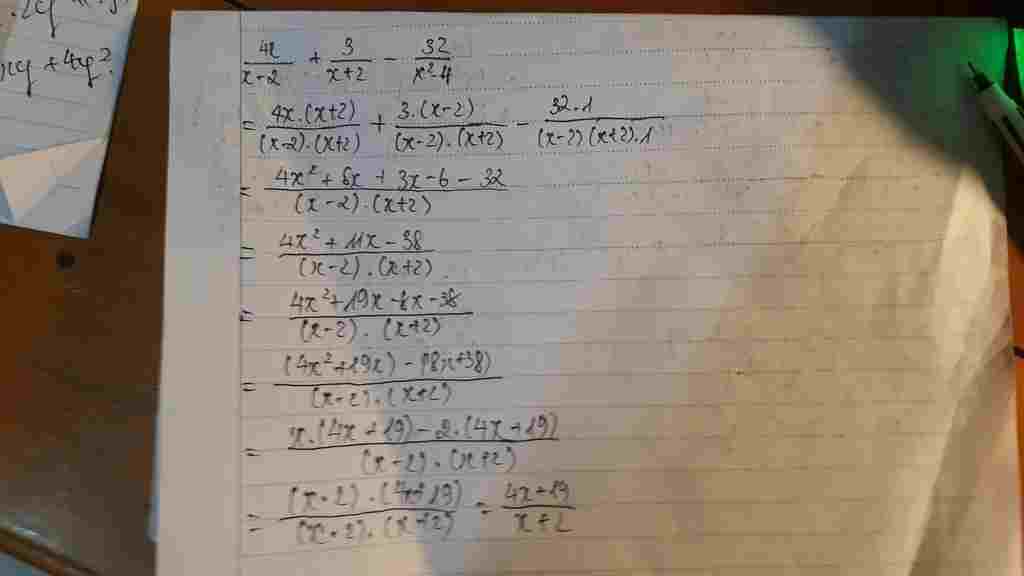 xy + 4y²
4x/(x-2) + 3/(x+2) - 32/(x²-4)
= 4x.(x+2)/(x-2).(x+2) + 3.(x-2)/(x-2).(x+2) - 32.1/(x-2)(x+2).1
= 4x² + 8x + 3x-6 - 32/(x-2).(x+2)
= 4x² + 11x - 38/(x-2).(x+2)
= 4x²+19x-8x-38/(x-2).(x+2)
= (4x²+19x) - (8x+38)/(x-2).(x+2)
= x.(4x+19) - 2.(4x+19)/(x-2).(x+2)
= (x-2).(4x+19)/(x-2).(x+2) = 4x+19/x+2